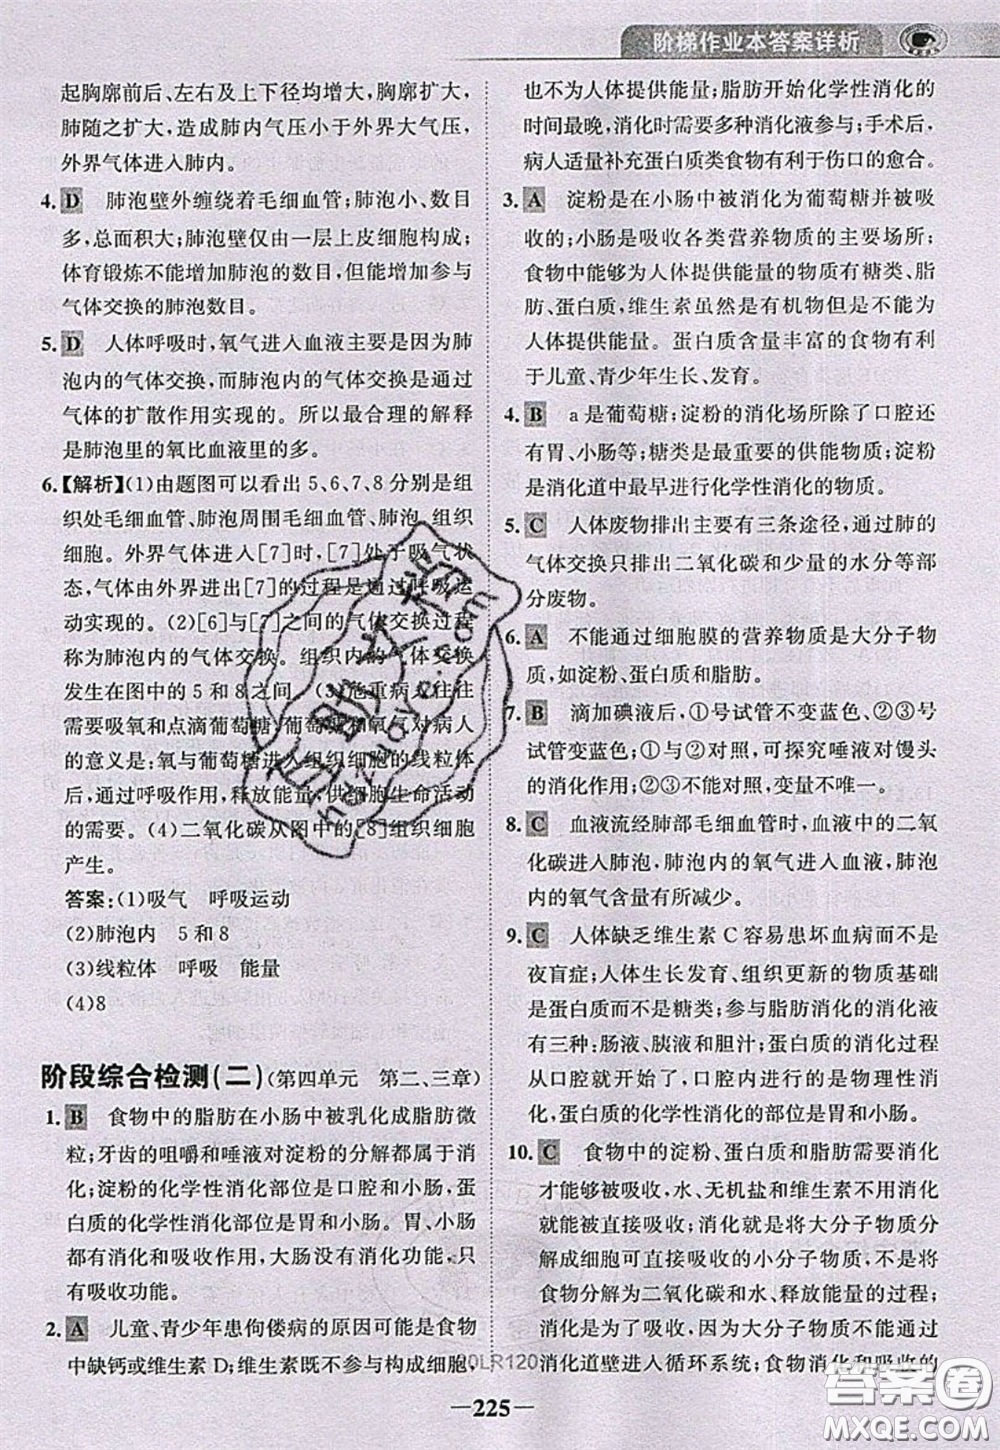 阶梯作业本答案详析
起胸廓前后、左右及上下径均增大,胸廓扩大,
肺随之扩大,造成肺内气压小于外界大气压,
外界气体进入肺内。
4. D 肺泡壁外缠绕着毛细血管;肺泡小、数目
多,总面积大;肺泡壁仅由一层上皮细胞构成;
体育锻炼不能增加肺泡的数目,但能增加参与
气体交换的肺泡数目。
5. D 人体呼吸时,氧气进入血液主要是在肺
泡内的气体交换,而肺泡内的气体交换是通过
气体的扩散作用实现的。所以最合理的解释
是肺泡里的氧比血液里的多。
6.【解析】(1)由题图可以看出 5、6、7、8 分别是组
织处毛细血管、肺泡周围毛细血管、肺泡、组织
细胞。外界气体进入[7]时,[7]处于吸气状
态,气体由外界进出[7]的过程是通过呼吸运
动实现的。(2)[6]与[7]之间的气体交换过程
称为肺泡内的气体交换。组织内的气体交换
发生在图中的 5 和 8 之间。(3)危重病人往往
需要吸氧和点滴葡萄糖,葡萄糖和氧气对病人
的意义是:氧与葡萄糖进入组织细胞的线粒体
后,通过呼吸作用,释放能量,供细胞生命活动
的需要。(4)二氧化碳从图中的[8]组织细胞
产生。
答案:(1)吸气 呼吸运动
(2)肺泡内 5 和 8
(3)线粒体 呼吸 能量
(4)8
阶段综合检测(二)(第四单元 第二、三章)
1. B 食物中的脂肪在小肠中被乳化成脂肪微
粒;牙齿的咀嚼和唾液对淀粉的分解都属于消
化;淀粉的化学性消化部位是口腔和小肠,蛋
白质的化学性消化部位是胃和小肠。胃、小肠
都有消化和吸收作用,大肠没有消化功能,只
有吸收功能。
2. A 儿童、青少年患佝偻病的原因可能是食物
中缺钙或维生素 D;维生素既不参与构成细胞,
也不为人体提供能量;脂肪开始化学性消化的
时间最晚,消化时需要多种消化液参与;手术后,
病人适量补充蛋白质类食物有利于伤口的愈合。
3. A 淀粉是在小肠中被消化为葡萄糖并被吸
收的;小肠是吸收各类营养物质的主要场所;
食物中能够为人体提供能量的物质有糖类、脂
肪、蛋白质,维生素虽然是有机物但是不能为
人体提供能量。蛋白质含量丰富的食物有利
于儿童、青少年生长、发育。
4. B a 是葡萄糖;淀粉的消化场所除了口腔还
有胃、小肠等;糖类是最重要的供能物质,淀粉
是消化道中最早进行化学性消化的物质。
5. C 人体废物排出主要有三条途径,通过肺的
气体交换只排出二氧化碳和少量的水分等部
分废物。
6. A 不能通过细胞膜的营养物质是大分子物
质,如淀粉、蛋白质和脂肪。
7. B 滴加碘液后,①号试管不变蓝色、②③号
试管变蓝色;①与②对照,可探究唾液对馒头
的消化作用;②③不能对照,变量不唯一。
8. C 血液流经肺部毛细血管时,血液中的二氧
化碳进入肺泡,肺泡内的氧气进入血液,肺泡
内的氧气含量有所减少。
9. C 人体缺乏维生素 C 容易患坏血病而不是
夜盲症;人体生长发育、组织更新的物质基础
是蛋白质而不是糖类;参与脂肪消化的消化液
有三种:肠液、胰液和胆汁;蛋白质的消化过程
从胃开始进行,口腔内进行的是机械、物理消
化,蛋白质的化学性消化的部位是胃和小肠。
10. C 食物中的淀粉、蛋白质和脂肪需要消化
才能够被吸收,水、无机盐和维生素不需消化
就能被直接吸收;消化就是将大分子物质分
解成细胞可直接吸收的小分子物质,不是将
食物分解为二氧化碳和水等物质,释放能量
的过程;吸收的实质就是食物中的营养物质
从消化道壁进入循环系统;食物消化吸收的
20LR120
—225—
答案圈
MXQE.COM